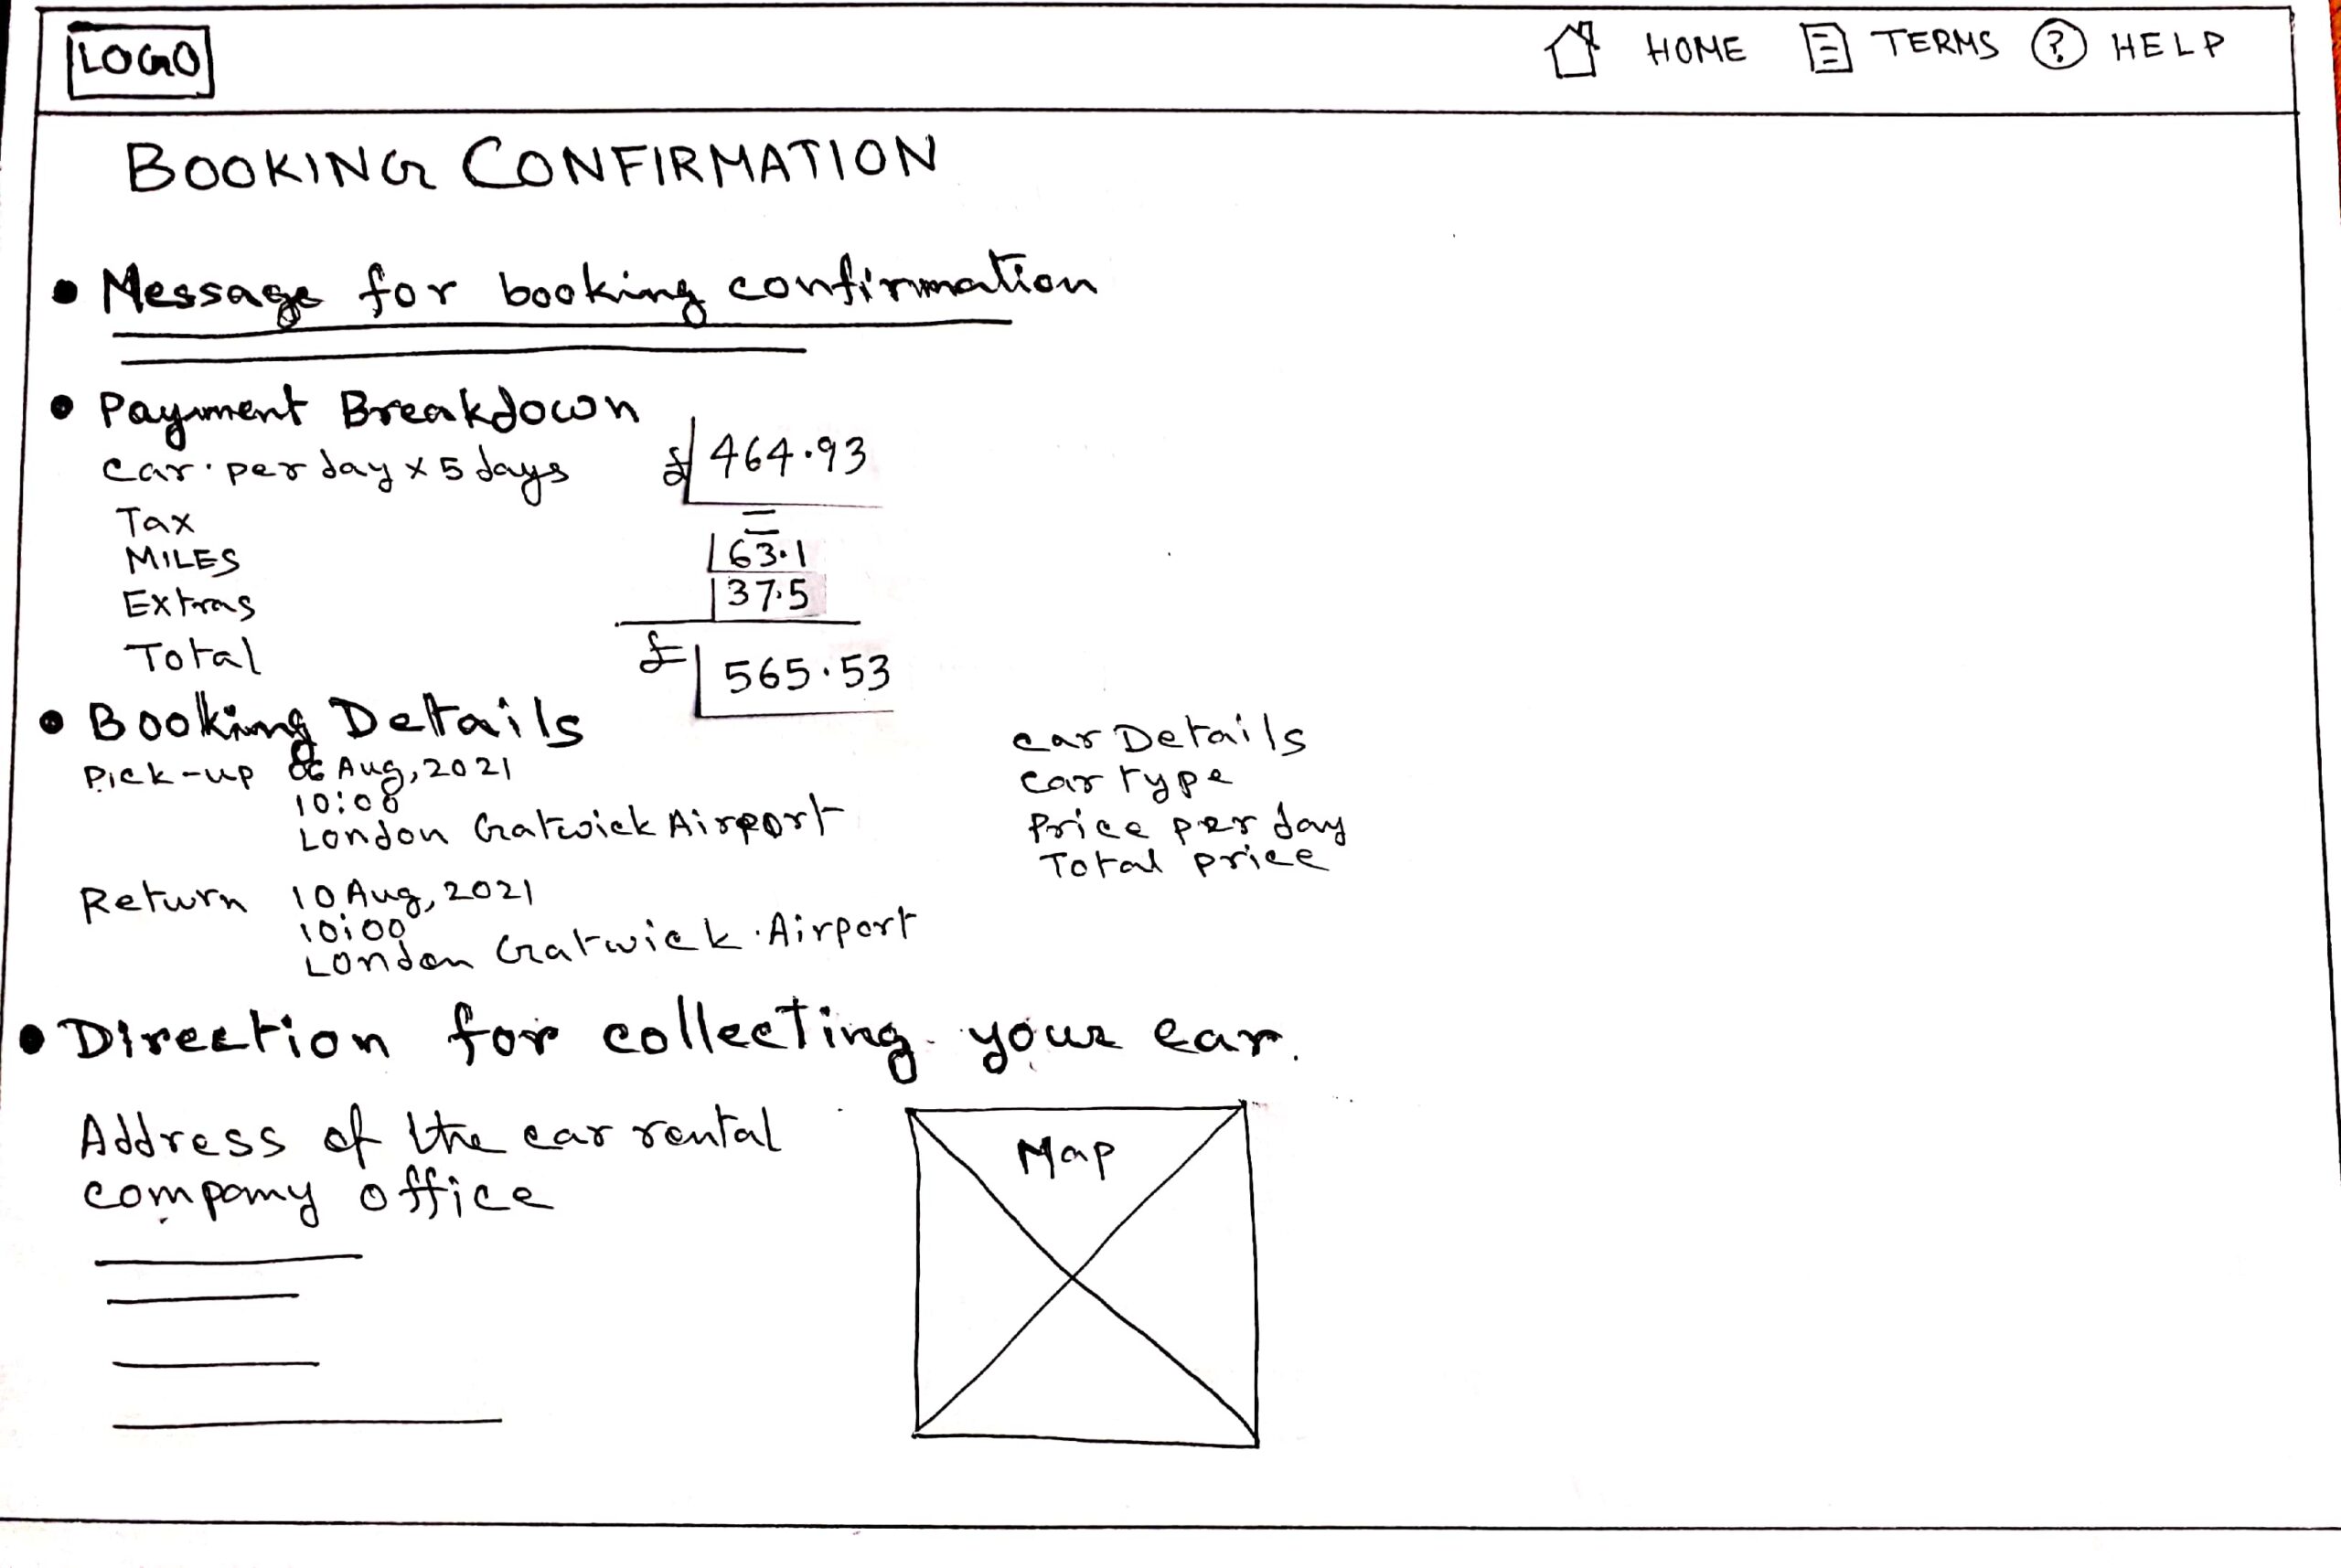 LOGO
HOME TERMS ? HELP
BOOKING CONFIRMATION
• Message for booking confirmation
• Payment Breakdown
car per day x 5 days £ 464.93
Tax
MILES 63.1
Extras 37.5
Total £ 565.53
• Booking Details
Pick-up Aug, 2021
10:00
London Gatwick Airport
Return 10 Aug, 2021
10:00
London Gatwick Airport
car Details
car type
Price per day
Total price
• Direction for collecting your car.
Address of the car rental
company office
Map